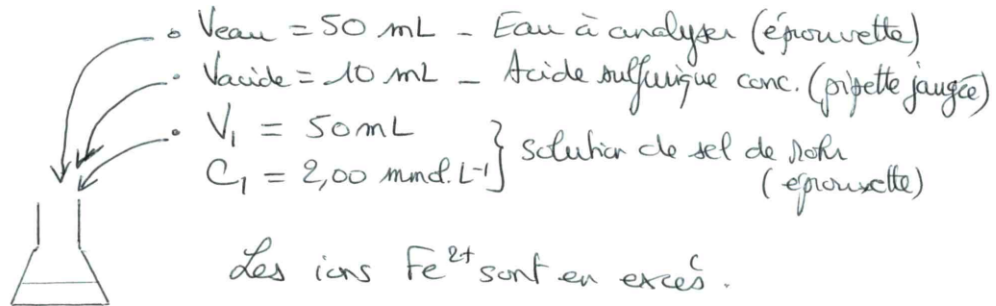 • Veau = 50 mL - Eau à analyser (éprouvette)
• Vacide = 10 mL - Acide sulfurique conc. (pipette jaugée)
• V₁ = 50mL
C₁ = 2,00 mmol.L⁻¹ } solution de sel de Mohr
(éprouvette)
Les ions Fe²⁺ sont en excès.